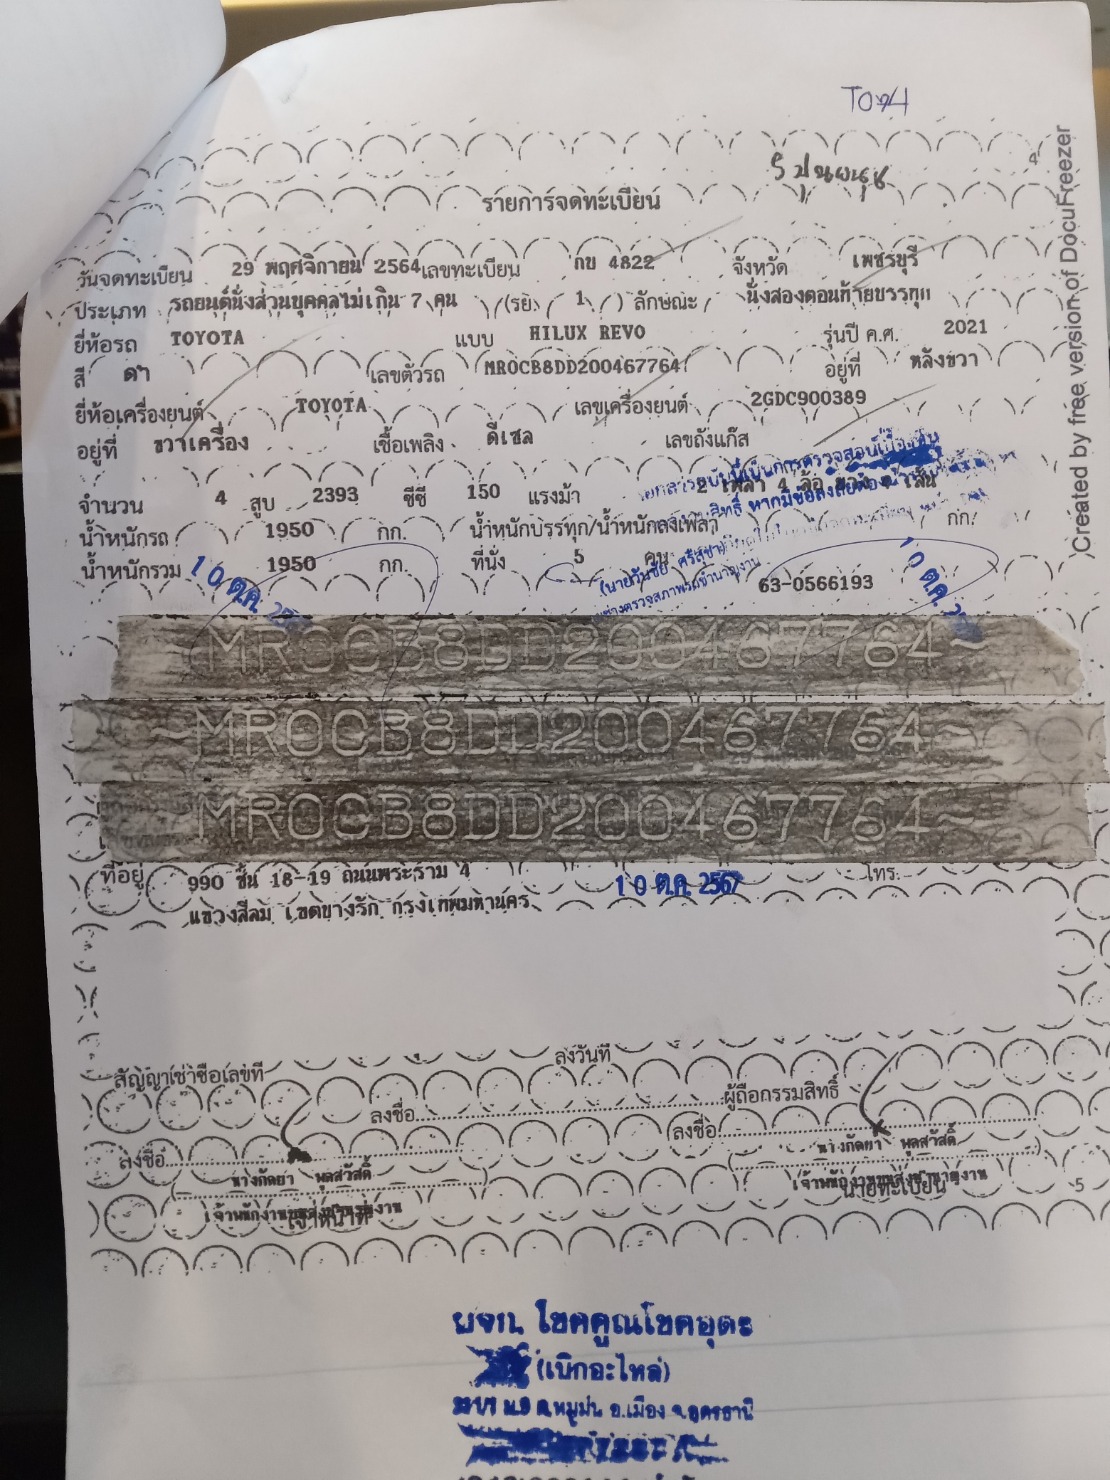 TO74
4
รายการจดทะเบียน
วันจดทะเบียน 29 พฤศจิกายน 2564 เลขทะเบียน กข 4822 จังหวัด เพชรบุรี
ประเภท รถยนต์นั่งส่วนบุคคลไม่เกิน 7 คน (รย. 1 ) ลักษณะ นั่งสองตอนท้ายบรรทุก
ยี่ห้อรถ TOYOTA แบบ HILUX REVO รุ่นปี ค.ศ. 2021
สี ดำ เลขตัวรถ MR0CB8DD200467764 อยู่ที่ หลังขวา
ยี่ห้อเครื่องยนต์ TOYOTA เลขเครื่องยนต์ 2GDC900389
อยู่ที่ ขวาเครื่อง เชื้อเพลิง ดีเซล เลขถังแก๊ส
จำนวน 4 สูบ 2393 ซีซี 150 แรงม้า 2 เพลา 4 ล้อ ยาง 4 เส้น
น้ำหนักรถ 1950 กก. น้ำหนักบรรทุก/น้ำหนักลงเพลา กก.
น้ำหนักรวม 1950 กก. ที่นั่ง 5 คน
(นายวันชัย ศรีสุชา)
63-0566193
10 ต.ค. 10 ต.ค.
~MR0CB8DD200467764~
~MR0CB8DD200467764~
~MR0CB8DD200467764~
ที่อยู่ 990 ชั้น 18-19 ถนนพระราม 4 10 ต.ค. 2567 โทร.
แขวงสีลม เขตบางรัก กรุงเทพมหานคร
สัญญาเช่าซื้อเลขที่ ลงวันที่
ลงชื่อ ผู้ถือกรรมสิทธิ์
ลงชื่อ ลงชื่อ
นางภัดยา พูลสวัสดิ์ นางภัดยา พูลสวัสดิ์
เจ้าหน้าที่ นายทะเบียน
5
หจก. โชคคูณโชคอุดร
(เบิกอะไหล่)
ต.หมูม่น อ.เมือง จ.อุดรธานี
Created by free version of DocuFreezer